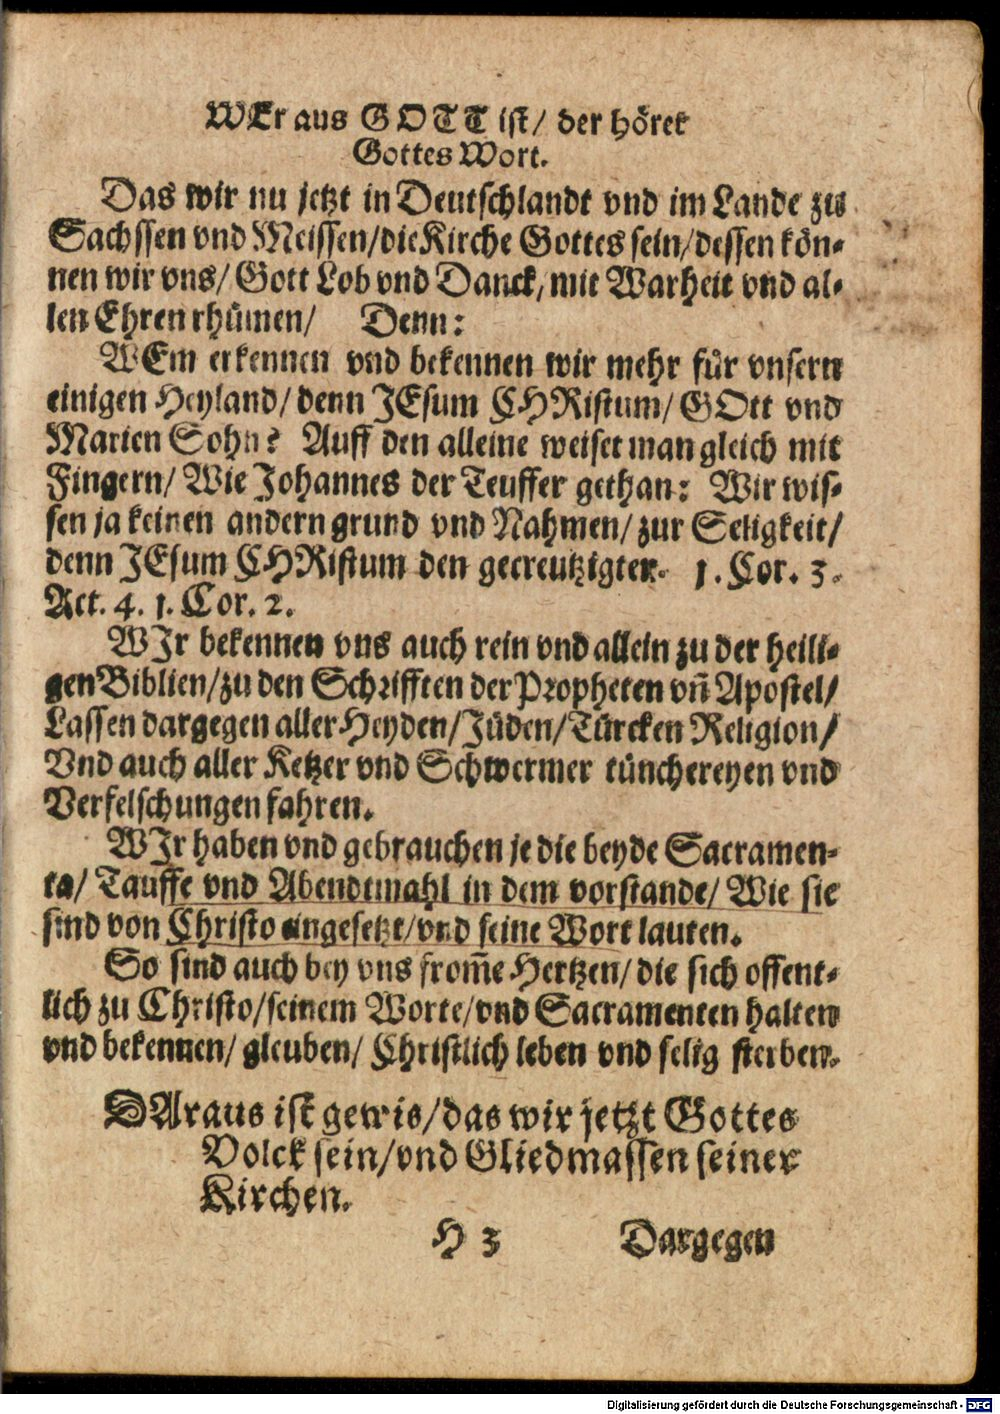 WEr aus GOTT ist/ der höret
Gottes Wort.
Das wir nu jetzt in Deutschlandt vnd im Lande zu
Sachssen vnd Meissen/die Kirche Gottes sein/dessen kön-
nen wir vns/ Gott Lob vnd Danck/ mit Warheit vnd al-
len Ehren rhümen/ Denn:
WEm erkennen vnd bekennen wir mehr für vnsern
einigen Heyland/ denn JEsum CHRistum/ GOtt vnd
Marien Sohn? Auff den alleine weiset man gleich mit
Fingern/ Wie Johannes der Teuffer gethan: Wir wis-
sen ja keinen andern grund vnd Nahmen/ zur Seligkeit/
denn JEsum CHRistum den gecreutzigten. 1. Cor. 3.
Act. 4. 1. Cor. 2.
WJr bekennen vns auch rein vnd allein zu der heili-
gen Biblien/zu den Schrifften der Propheten vñ Apostel/
Lassen dargegen aller Heyden/Jüden/Türcken Religion/
Vnd auch aller Ketzer vnd Schwermer tünchereyen vnd
Verfelschungen fahren.
WJr haben vnd gebrauchen je die beyde Sacramen-
ta/ Tauffe vnd Abendtmahl in dem vorstande/ Wie sie
sind von Christo eingesetzt/vnd seine Wort lauten.
So sind auch bey vns from̃e Hertzen/ die sich offent-
lich zu Christo/seinem Worte/vnd Sacramenten halten
vnd bekennen/ gleuben/ Christlich leben vnd selig sterben.
DAraus ist gewis/das wir jetzt Gottes
Volck sein/vnd Gliedmassen seiner
Kirchen.
H 3 Dargegen
Digitalisierung gefördert durch die Deutsche Forschungsgemeinschaft - DFG